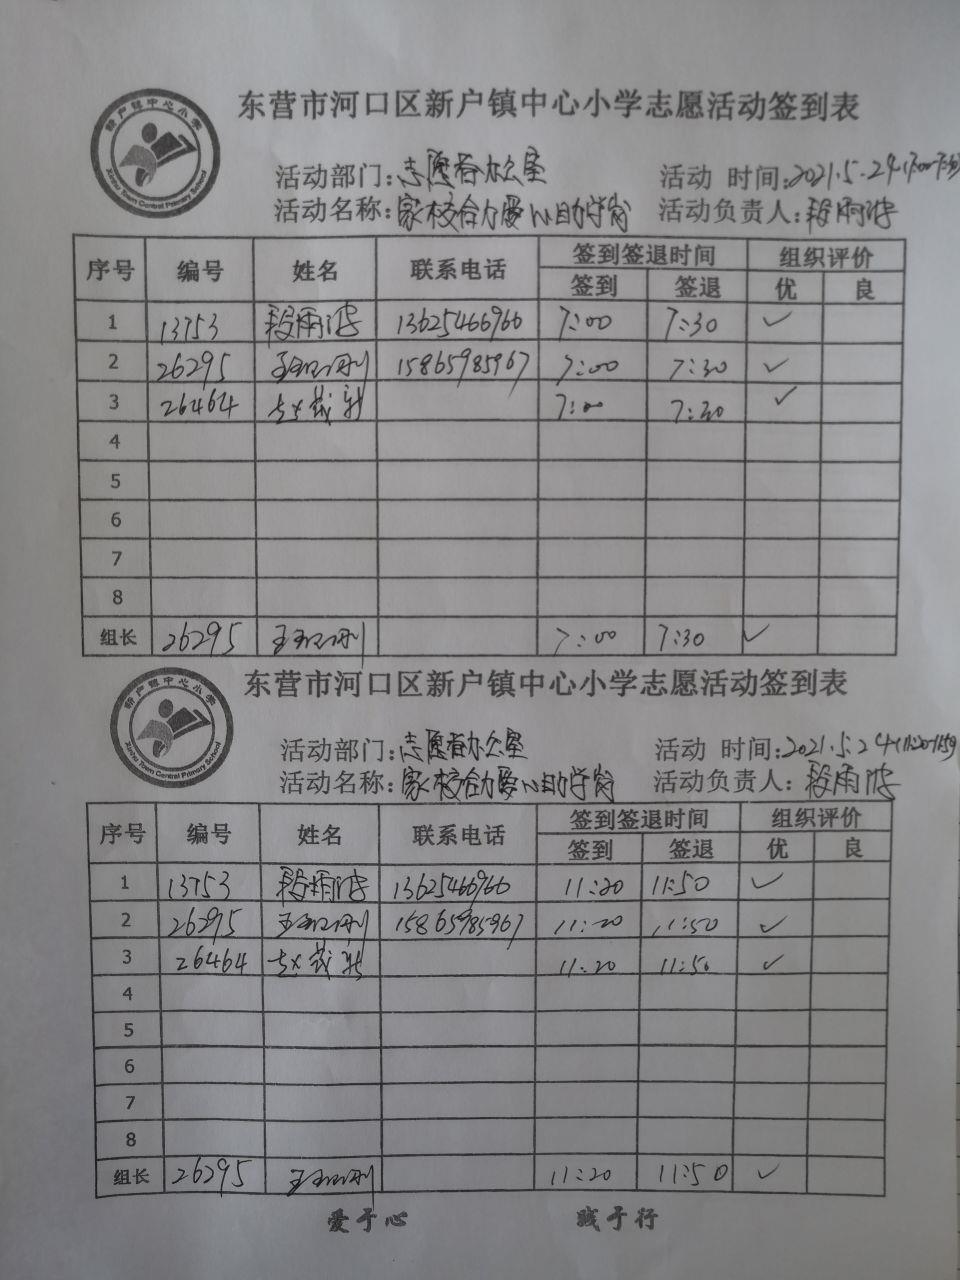 新户镇中心小学
Xinhu Town Central Primary School
东营市河口区新户镇中心小学志愿活动签到表
活动部门:志愿者办公室 活动 时间:2021.5.24(7:00-7:30)
活动名称:家校合力爱心助学岗 活动负责人:段雨
序号 编号 姓名 联系电话 签到签退时间 组织评价
签到 签退 优 良
1 13753 段雨 13625466966 7:00 7:30 ✓
2 26295 王 刚 15865985967 7:00 7:30 ✓
3 26464 赵 新 7:00 7:30 ✓
4
5
6
7
8
组长 26295 王 刚 7:00 7:30 ✓
新户镇中心小学
Xinhu Town Central Primary School
东营市河口区新户镇中心小学志愿活动签到表
活动部门:志愿者办公室 活动 时间:2021.5.24(11:20-11:50
活动名称:家校合力爱心助学岗 活动负责人:段雨
序号 编号 姓名 联系电话 签到签退时间 组织评价
签到 签退 优 良
1 13753 段雨 13625466966 11:20 11:50 ✓
2 26295 王 刚 15865985967 11:20 11:50 ✓
3 26464 赵 新 11:20 11:50 ✓
4
5
6
7
8
组长 26295 王 刚 11:20 11:50 ✓
爱于心 践于行